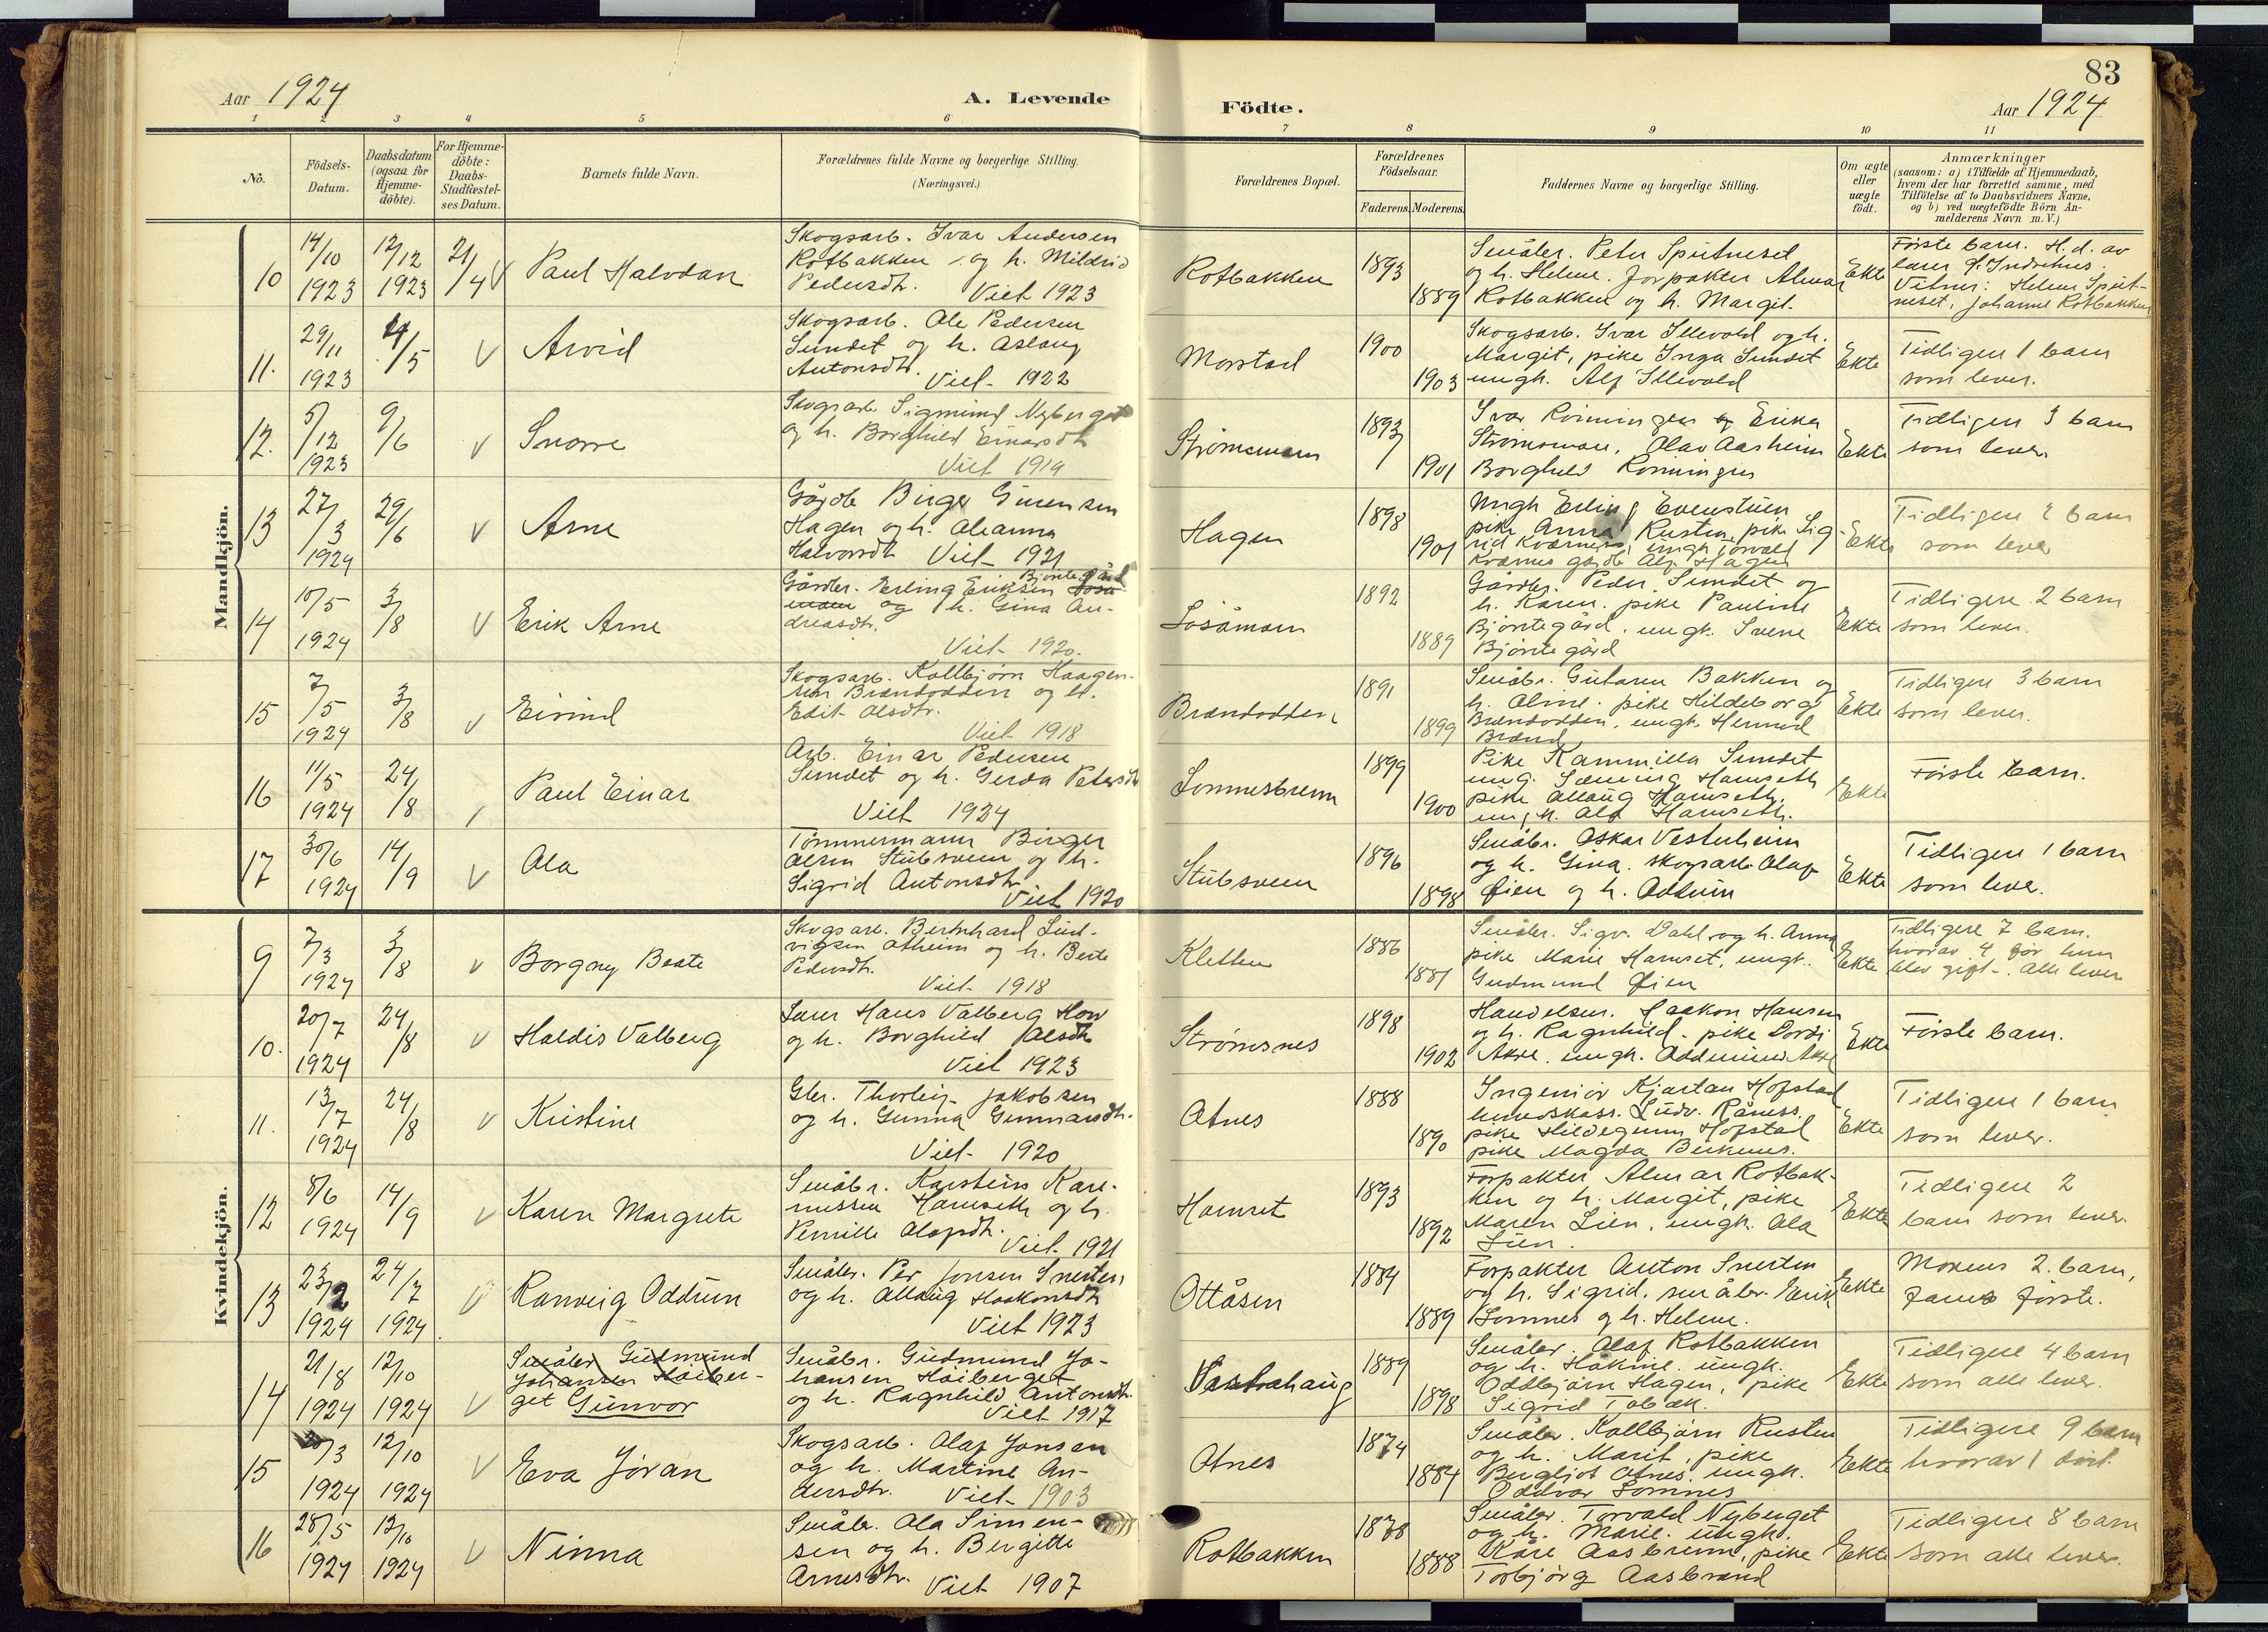 Aar 1924
A. Levende
Födte.
83
Aar 1924
1 2 3 4 5 6 7 8 9 10 11
No.
Födsels-Datum.
Daabsdatum (ogsaa for Hjemme-döbte).
For Hjemme-döbte: Daabs-Stadfæstel-ses Datum.
Barnets fulde Navn.
Forældrenes fulde Navne og borgerlige Stilling. (Næringsvei.)
Forældrenes Bopæl.
Forældrenes Födselsaar.
Faderens. Moderens.
Faddernes Navne og borgerlige Stilling.
Om ægte eller uægte födt.
Anmærkninger
(saasom: a) i Tilfælde af Hjemmedaab,
hvem der har forrettet samme, med
Tilföielse af to Daabsvidners Navne,
og b) ved uægtefödte Börn An-
melderens Navn m. V.)
Mandkjön.
10 14/10 1923 12/12 1923 21/4 V Paul Halvdan
Skogsarb. Ivar Andersen
Rotbakken og h. Mildrid
Pedersdtr. Viet 1923
Rotbakken 1893 1889
Småbr. Peter Sputneset
og h. Helene. Forpakter Almar
Rotbakken og h. Margit.
Ekte
Første barn. H.d. av
lærer Indrehus.
Vitner: Helene Sput-
neset, Johanne Rotbakken
11. 29/11 1923 4/5 V Arvid
Skogsarb. Ole Pedersen
Sundet og h. Aslaug
Antonsdtr. Viet 1922
Morstad 1900 1903
Skogsarb. Ivar Illevold og h.
Margit, pike Inga Sundet
ungk. Alf Illevold
Ekte
Tidligere 1 barn
som lever.
12. 5/12 1923 9/6 V Snorre
Skogsarb. Sigmund Nyberget
og h. Borghild Einarsdtr
Viet 1919
Strømsmoen 1893 1901
Ivar Rønningen og Erika
Strømsmoen, Olav Aasheim
Borghild Rønningen
Ekte
Tidligere 3 barn
som lever
13 27/3 1924 29/6 V Arne
Birger
Hagen og h. Oleanna
Halvorsdtr Viet 1921
Hagen 1898 1901
Ungk Erling Evenstuen
pike Anna Rusten, pike Sig-
rid Kværnes, ungk Torvald
Kværnes gårdbr Alf Hagen
Ekte
Tidligere 2 barn
som lever
14 10/5 1924 3/8 V Erik Arne
Gårdbr. Erling Eriksen Bjøntegård
og h. Gina An-
dreasdtr.
Viet 1920.
Losåmoen 1892 1889
Gårdbr. Peder Sundet og
h. Karen. pike Pauline
Bjøntegård, ungk. Svene
Bjøntegård
Ekte
Tidligere 2 barn
som lever.
15 7/5 1924 3/8 V Eivind
Skogsarb. Kolbjørn Haagen-
sen Brændodden og h.
Edit Olsdtr.
Viet 1918
Brændodden 1891 1899
Småbr. Gutorm Bakken og
h. Oline. pike Hildeborg
Brændodden, ungk. Hermod
Brænd
Ekte
Tidligere 3 barn
som lever.
16 11/5 1924 24/8 Paul Einar
Arb. Einar Pedersen
Sundet og h. Gerda Petersdtr
Viet 1924
Lomnesbrenn 1899 1900
Pike Kammilla Sundet
Hamseth
pike Ollaug Hamseth,
ungk. Alf Hamseth.
Ekte
Første barn.
17 30/6 1924 14/9 V Ola
Tømmermann Birger
Olsen Stubsveen og h.
Sigrid Antonsdtr
Viet 1920
Stubsveen 1896 1898
Småbr. Oskar Vesterheim
og h. Gina. skogsarb Olaf
Øien og h. Oddrun
Ekte
Tidligere 1 barn
som lever.
Kvindekjön.
9 7/3 1924 3/8 V Borgny Beate
Skogsarb. Bernhard Lud-
vigsen Otheim og h. Berte
Pedersdtr.
Viet 1918
Kletten 1886 1881
Småbr. Sigv. Dahl og h. Anna
pike Marie Hamset, ungk.
Gudmund Øien
Ekte
Tidligere 7 barn.
hvorav 4 før hun
blev gift. Alle lever
10. 20/7 1924 24/8 V Haldis Valberg
Lærer Hans Valberg Hov
og h. Borghild Olsdtr
Viet 1923
Strømsnes 1898 1902
Handelsm. Haakon Hansen
og h. Ragnhild. pike Dordi
Akre. ungk. Oddmund Akre
Ekte
Første barn.
11. 13/7 1924 24/8 V Kristine
Gbr. Thorleif Jakobsen
og h. Gunna Gunnarsdtr.
Viet 1920
Atnes 1888 1890
Ingeniør Kjartan Hofstad
herredskass. Ludv. Råness.
pike Hildegunn Hofstad
pike Magda
Ekte
Tidligere 1 barn
som lever.
12 8/6 1924 14/9 V Karen Margrete
Småbr. Karsteins Kare-
niussen Hamseth og h.
Pernille Olafsdtr.
Viet 1921
Hamset 1893 1892
Forpakter Almar Rotbak-
ken og h. Margit, pike
Maren Lien, ungk. Ola
Lien.
Ekte
Tidligere 2
barn som lever.
13 23/2 1924 24/7 1924 V Ranveig Oddrun
Småbr. Per Jonsen Snerten
og h. Ollaug Haakonsdtr
Viet 1923
Ottåsen 1884 1889
Forpakter Anton Snerten
og h. Sigrid, småbr. Erik
Lomnes og h. Helene.
Ekte
Morens 2. barn,
Farens første.
14 21/8 1924 12/10 1924 V Småbr Gudmund
Johansen Høiber-
get Gunvor
Småbr. Gudmund Jo-
hansen Høiberget
og h. Ragnhild Antonsdtr.
Viet 1917
Vastrahaug 1889 1898
Småbr. Olaf Rotbakken
og h. Håkine. ungk.
Oddbjørn Hagen, pike
Sigrid
Ekte
Tidligere 4 barn
som alle lever.
15 20/3 1924 12/10 1924 V Eva Jøran
Skogsarb. Olaf Jonsen
og h. Martine An-
dersdtr. Viet 1903
Atnes 1874 1884
Småbr. Kolbjørn Rusten
og h. Marit, pike
Bergljot Atnes. ungk.
Oddvar Lomnes
Ekte
Tidligere 9 barn
hvorav 1 død
16 28/5 1924 12/10 1924 V Ninna
Småbr. Ola Simen-
sen og h. Bergitte
Arnesdtr. Viet 1907
Rotbakken 1878 1888
Småbr. Torvald Nyberget
og h. Marie. ungk.
Kåre Aasbrenn, pike
Torbjørg Aasbrænd
Ekte
Tidligere 8 barn
som alle lever.